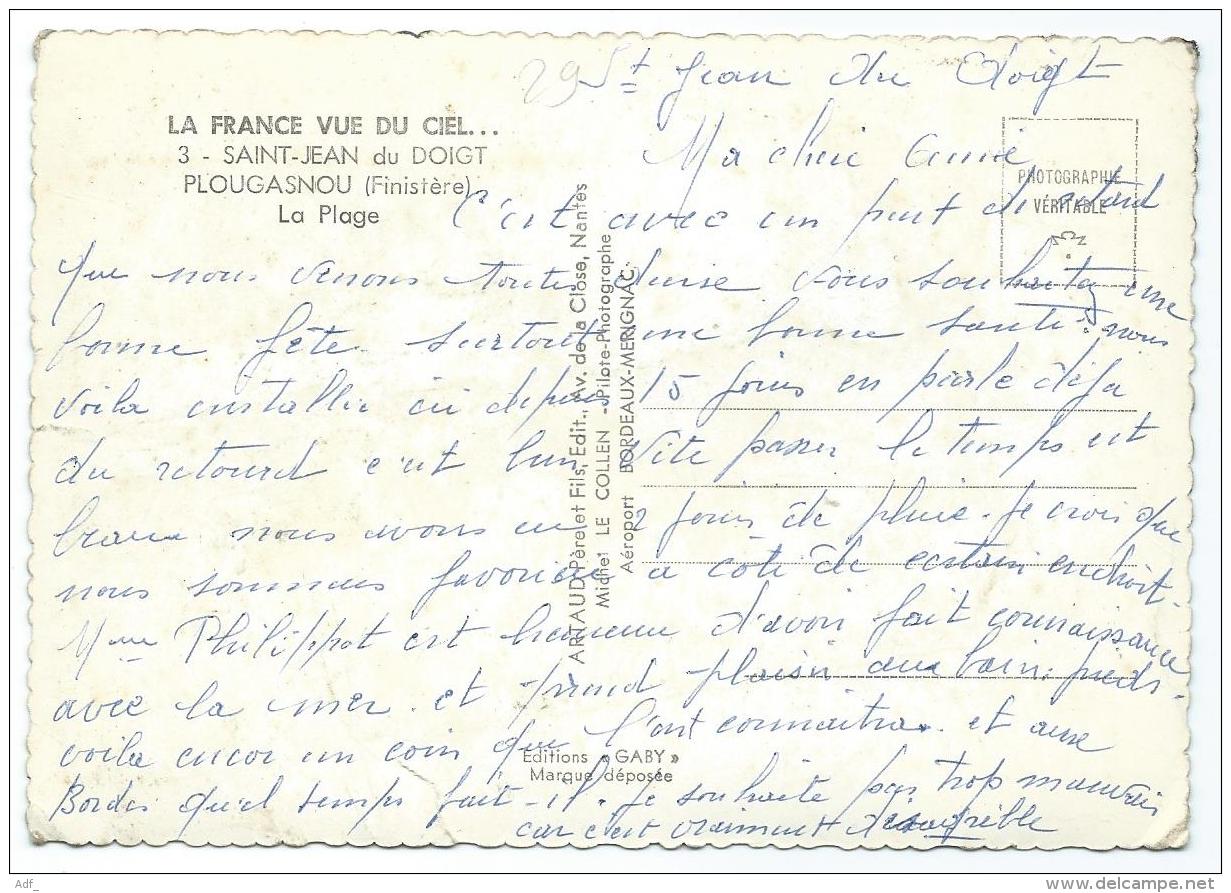 29
St Jean du Doigt
LA FRANCE VUE DU CIEL...
3 - SAINT-JEAN du DOIGT
PLOUGASNOU (Finistère)
La Plage
PHOTOGRAPHIE
VÉRITABLE
Ma chère Amie
C'est avec un peut de retard
que nous venons toutes vous souhaitez une
bonne fête surtout une bonne santé. nous
voila installée ici depuis 15 jours en parle déja
du retourd c'est bien vite passer le temps est
beau nous avons eu 2 jours de pluie. Je crois que
nous sommes favorisée a côté de certain endroit.
Mme Philippot est heureuse d'avoir fait connaissance
avec la mer. et prend plaisir aux bain. pieds.
voila encor un coin que l'ont connaitra. et aux
Bordes quel temps fait-il. Je souhaite pas trop mauvais
car c'est vraiment désagréble
ARTAUD Père et Fils, Edit., Av. de la Close, Nantes
Michel LE COLLEN - Pilote-Photographe
Aéroport BORDEAUX-MERIGNAC.
Editions « GABY »
Marque déposée
Adf_
www.delcampe.net